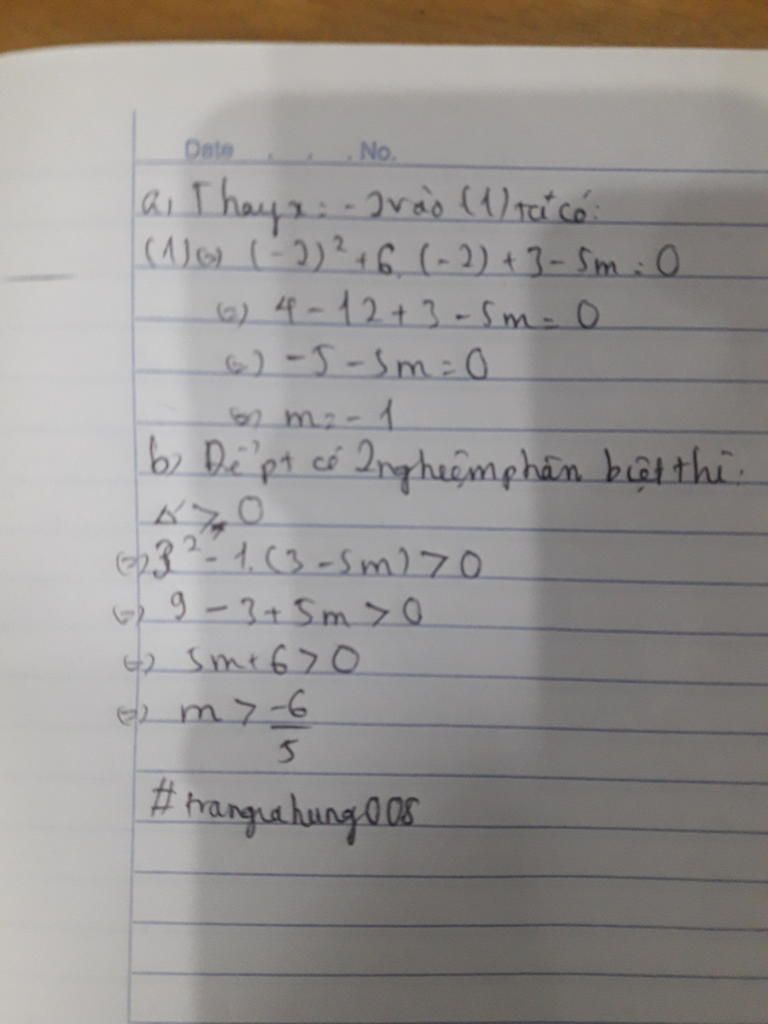 Date . . . No.
a, Thay x = -2 vào (1) ta có:
(1) <=> (-2)² + 6. (-2) + 3 - 5m = 0
<=> 4 - 12 + 3 - 5m = 0
<=> -5 - 5m = 0
<=> m = -1
b, Để pt có 2 nghiệm phân biệt thì:
Δ' > 0
<=> 3² - 1. (3 - 5m) > 0
<=> 9 - 3 + 5m > 0
<=> 5m + 6 > 0
<=> m > -6/5
#trangiahung008